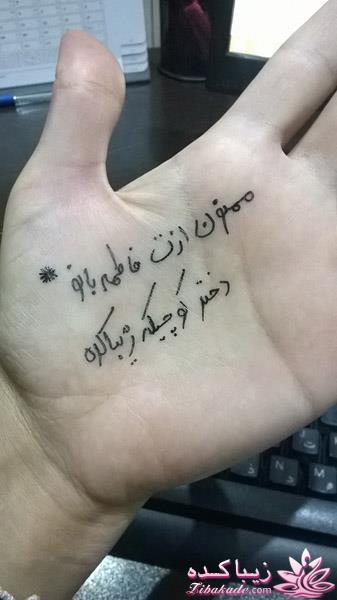 ممنون ازت فاطمه بانو *
دختر کوچیکه زیباکده
زیباکده
Zibakade.com